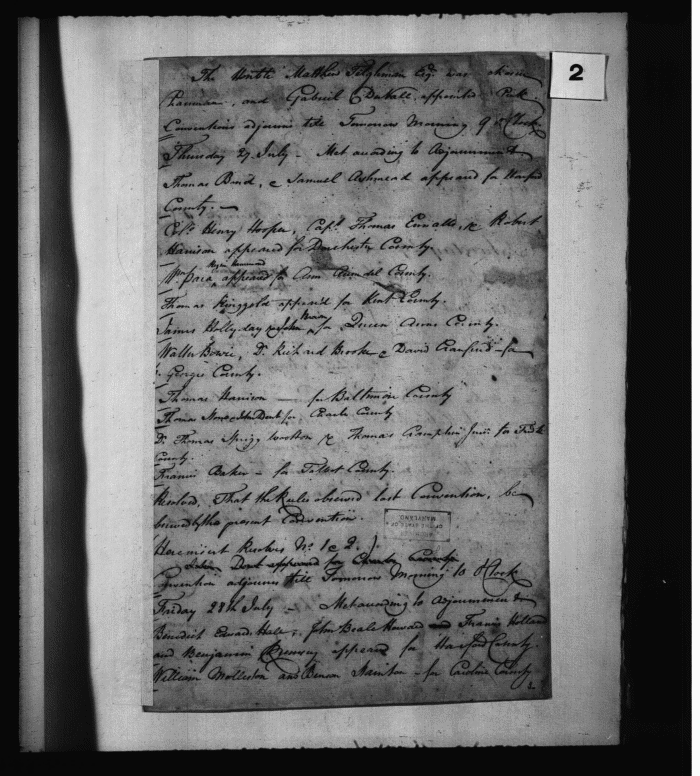 The Honble Matthew Tilghman Esqr. was chosen
Chairman, and Gabriel Duvall appointed Clk.
Convention adjourns till Tomorrow Morning 9 o'Clock
Thursday 27 July - Met according to Adjournment
Thomas Bond, & Samuel Ashmead appeared for Harford
County. -
Colo. Henry Hooper, Capt. Thomas Ennalls, & Robert
Harrison appeared for Dorchester County.
Rezin Hammond
Wm. Paca appeared for Ann Arundel County.
Thomas Ringgold appeared for Kent County.
James Hollyday & John Brown for Queen Anns County.
Walter Bowie, Dr. Richard Brooke & David Craufurd - for
Georges County.
Thomas Harrison - for Baltimore County
Thomas Stone & John Dent for Charles County
Dr. Thomas Sprigg Wootton & Thomas Cramphin Junr. for Fredk
County.
Francis Baker - for Talbot County.
Resolved, That the Rules observed last Convention, be
by the present Convention.
Here insert Resolves No. 1 & 2.
John Dent appeared for Charles County
Convention adjourns till Tomorrow Morning 10 o'Clock
Friday 28th July - Met according to Adjournment
Benedict Edward Hall, John Beale Howard and Francis Holland
and Benjamin appeared for Harford County.
William Molleston and Benson Stainton - for Caroline County
2
OF THE STATE OF
MARYLAND
2